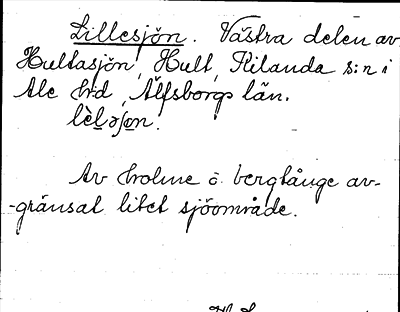 Lillesjön. Västra delen av
Hultasjön, Hult, Kilanda s:n i
Ale hd, Älfsborgs län.
lèləʃɷn.
Av holme o. bergtånge av-
-gränsat litet sjöområde.